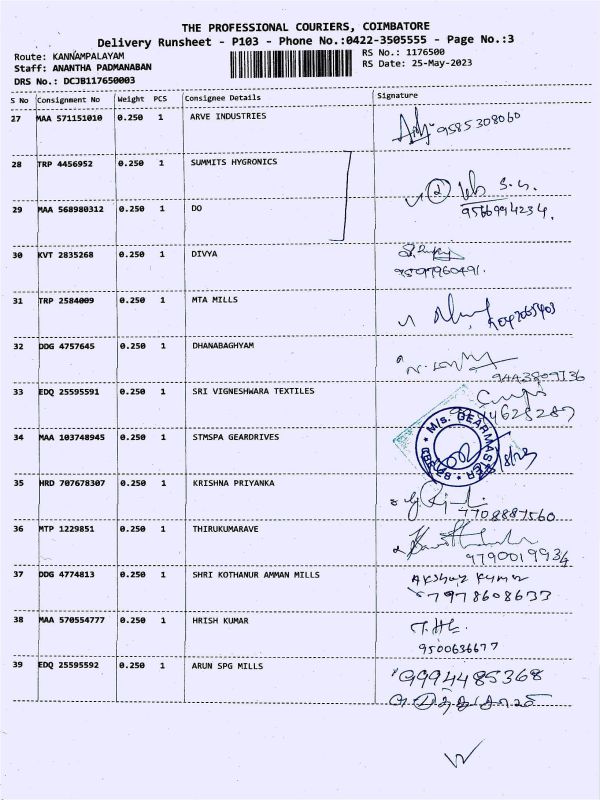 THE PROFESSIONAL COURIERS, COIMBATORE
Delivery Runsheet - P103 - Phone No.:0422-3505555 - Page No.:3
Route: KANNAMPALAYAM RS No.: 1176500
Staff: ANANTHA PADMANABAN RS Date: 25-May-2023
DRS No.: DCJB117650003
S No Consignment No Weight PCS Consignee Details Signature
27 MAA 571151010 0.250 1 ARVE INDUSTRIES 9585308060
28 TRP 4456952 0.250 1 SUMMITS HYGRONICS
29 MAA 568980312 0.250 1 DO 9566994234.
30 KVT 2835268 0.250 1 DIVYA
9597960491.
31 TRP 2584009 0.250 1 MTA MILLS
32 DDG 4757645 0.250 1 DHANABAGHYAM
9443809736
33 EDQ 25595591 0.250 1 SRI VIGNESHWARA TEXTILES
34 MAA 103748945 0.250 1 STMSPA GEARDRIVES
M/s. GEARMASTER
35 HRD 707678307 0.250 1 KRISHNA PRIYANKA
7708887560
36 MTP 1229851 0.250 1 THIRUKUMARAVE
9790019934
37 DDG 4774813 0.250 1 SHRI KOTHANUR AMMAN MILLS Akshay Kumar
7978608633
38 MAA 570554777 0.250 1 HRISH KUMAR
9500636677
39 EDQ 25595592 0.250 1 ARUN SPG MILLS 9994485368